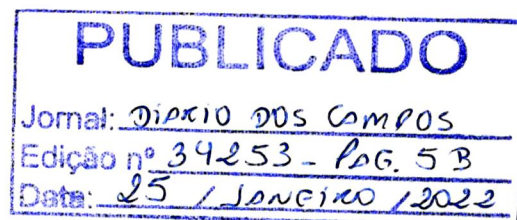 PUBLICADO
Jornal: DIÁRIO DOS CAMPOS
Edição nº 34253 - PAG. 5B
Data: 25 / JANEIRO / 2022